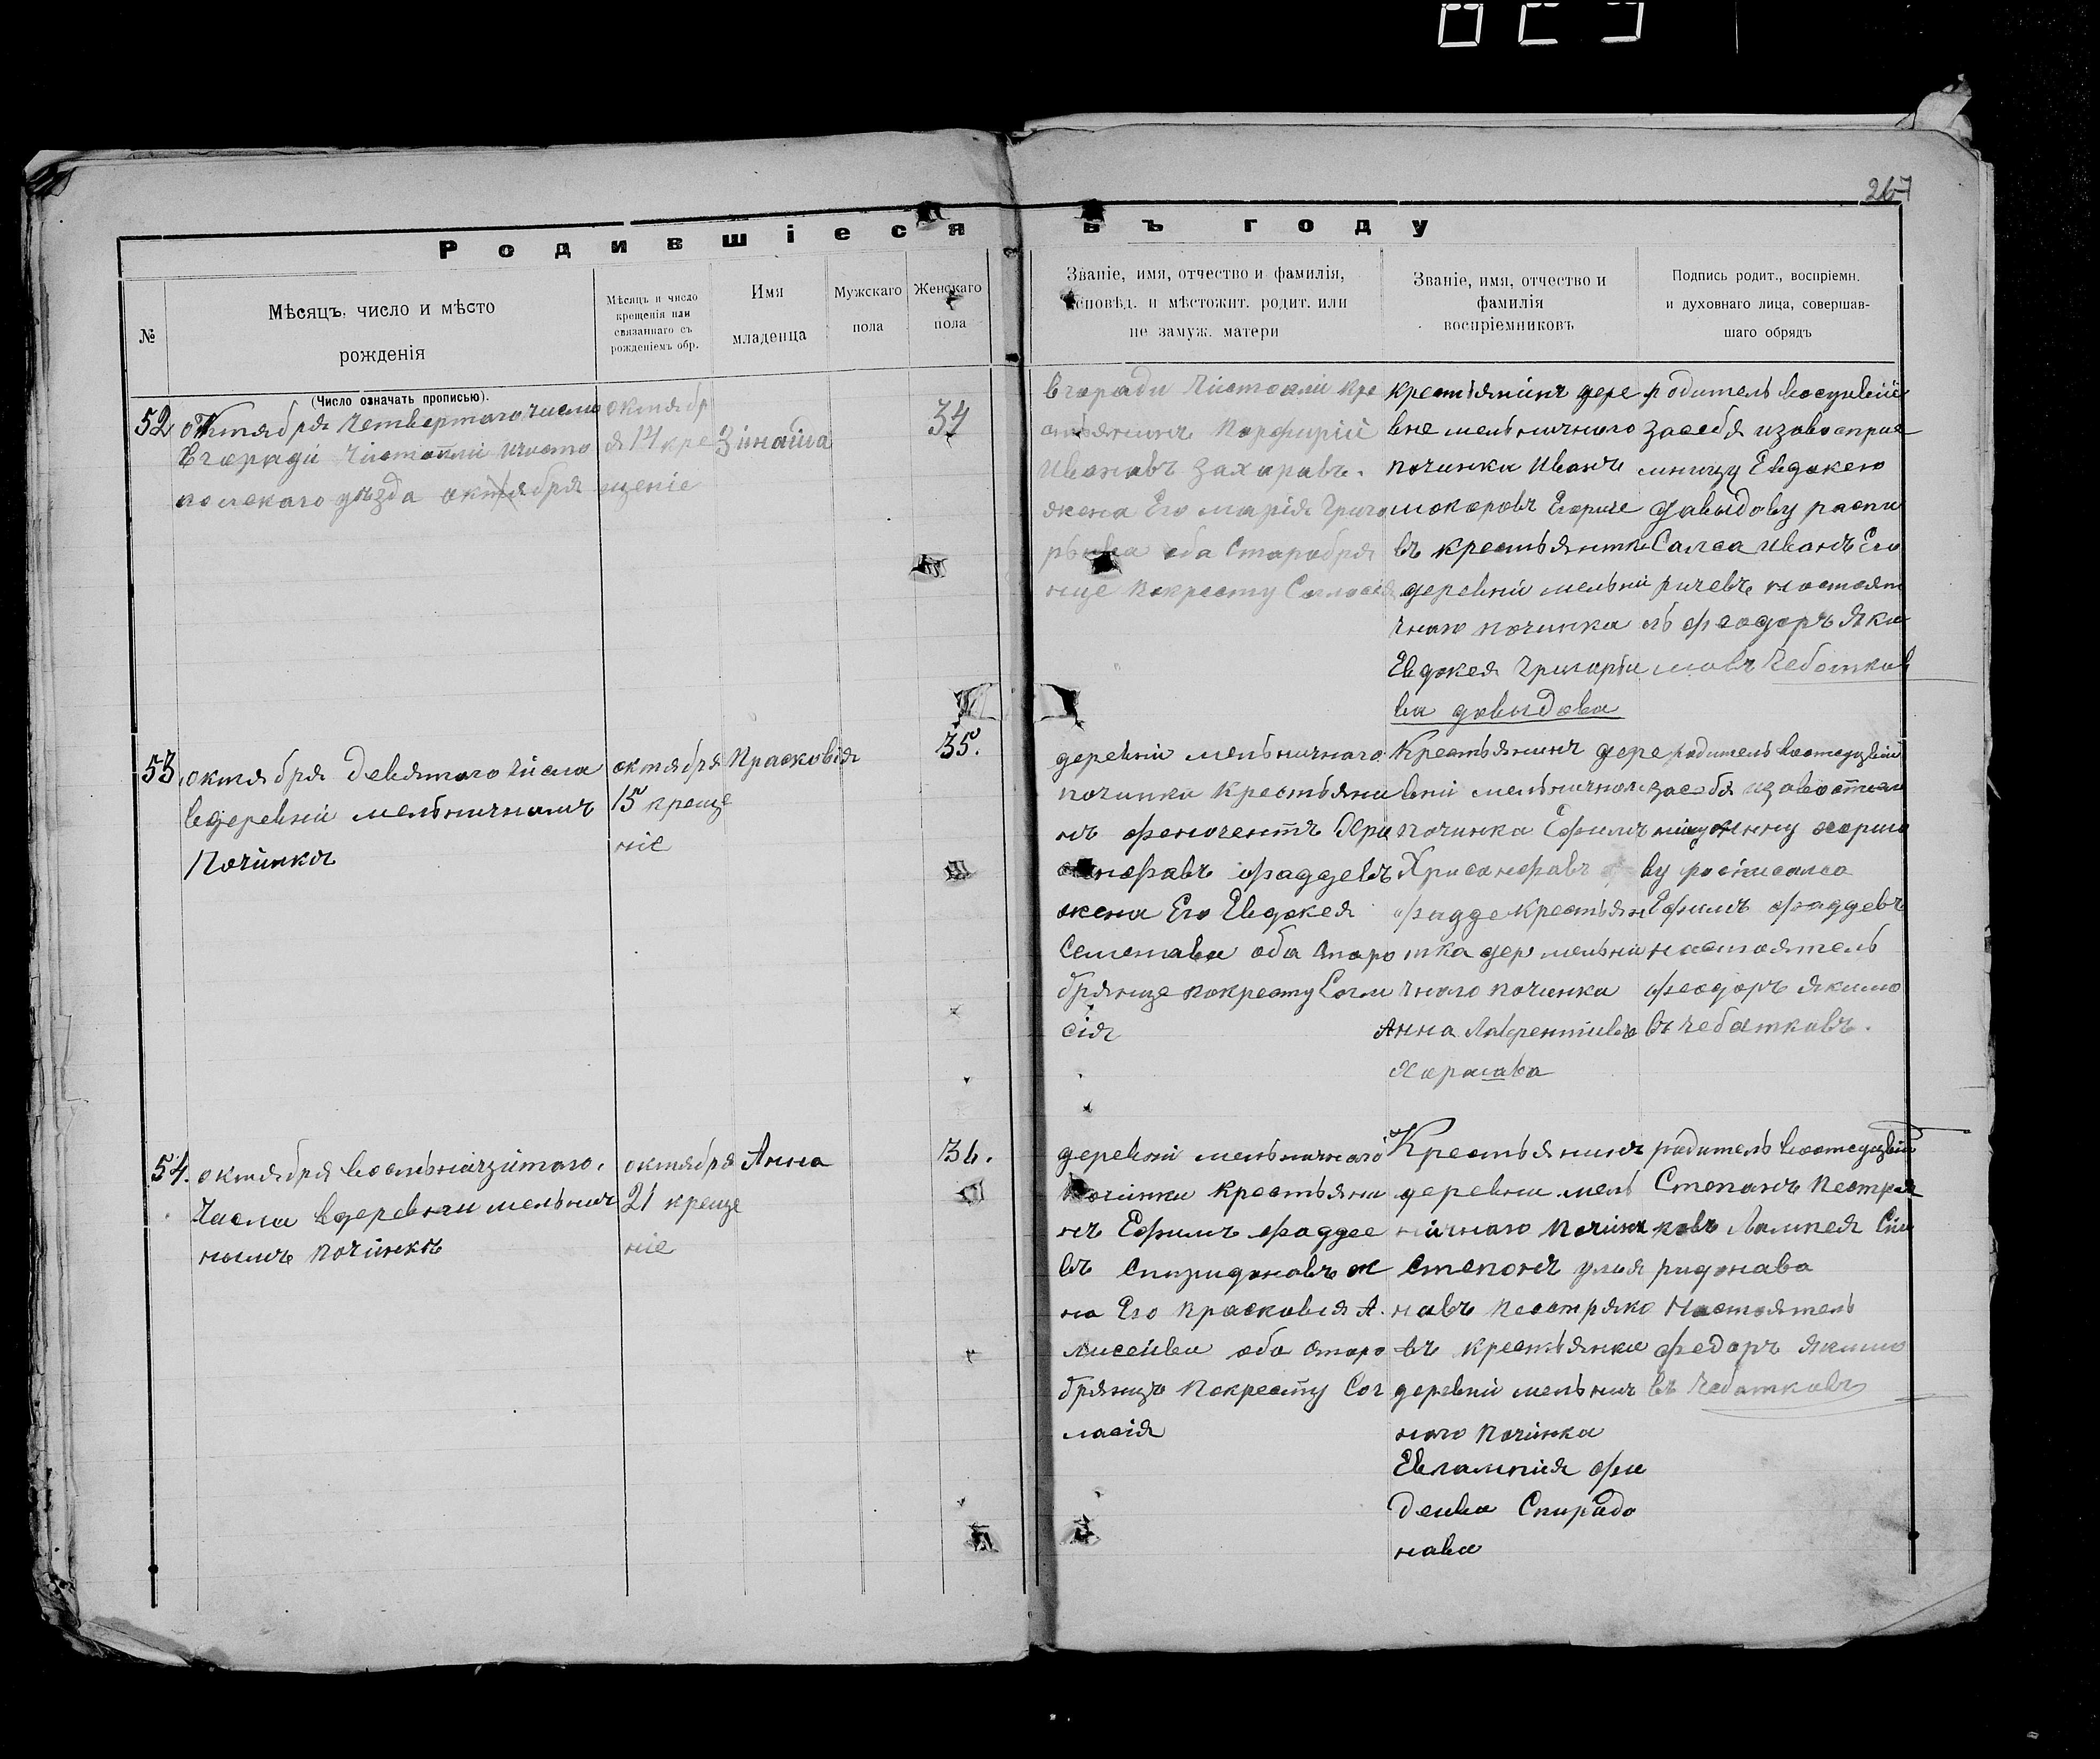 267
Родившіеся въ году
№
Мѣсяцъ, число и мѣсто
рожденія
(Число означать прописью).
Мѣсяцъ и число
крещенія или
связаннаго съ
рожденіемъ обр.
Имя
младенца
Мужскаго
пола
Женскаго
пола
Званіе, имя, отчество и фамилія,
исповѣд. и мѣстожит. родит. или
не замуж. матери
Званіе, имя, отчество и
фамилія
воспріемниковъ
Подпись родит., воспріемн.
и духовнаго лица, совершав-
шаго обрядъ
52
октября Четвертаго числа
вгороди Чистопли Чисто
полскаго уѣзда октября
октябр
я 14 кре
щеніе
Зинаида
34
вгороди Чистопли кре
стьянинъ Порфирій
Ивановъ Захаровъ.
жена Его марія Григо
рьива оба Старобря
нце покресту Согласія
крестьянинъ дере
вне мельничнаго
починка Иванъ
мокоровъ Егориче
въ крестьянтка
деревни мельни
чнаго починка
Евдокея Григорьи
ва довыдова
родитель
засебя изавосприе
мницу Евдокею
довыдову распи
Салса Иванъ Его
ричевъ настоят
ль феодоръ Яки
мовъ Чеботков
53.
октября девятаго числа
вдеревни мельничномъ
Починкѣ
октября
15 креще
ніе
Прасковія
35.
деревни мельничнаго
починка крестьяни
нъ Хри
санфовъ фаддевъ
жена Его Евдокея
оба старо
брянце покресту Согла
сія
Крестьянинъ дере
вни мельничнаго
починка Ефимъ
Хрисанфовъ
фадде крестьян
тка дер мельни
чнаго починка
Анна Лаврентиева
Харлова
родитель
засебя
ву росписалса
Ефимъ фаддевъ
настоятель
феодоръ якимо
въ чеботковъ.
54.
октября восьмнадцитаго.
Числа вдеревни мельнич
номъ починкѣ
октября
21 креще
ніе
Анна
36.
деревни мельничнаго
Починки крестьяни
нъ Ефимъ фаддее
въ Спиридоновъ ж
на Его Прасковія А.
лисеива оба старо
брянцо Покресту Сог
ласія
Крестьянинъ
деревни мель
ничнаго починк
степонъ улия
новъ Пестряко
въ крестьянка
деревни мельнич
наго починка
Евлампия фи
деива Спиридо
нова
родитель
Степанъ Пестря
ковъ Лампея Спи
ридонава
Настоятель
федоръ якимо
въ Чеботковъ